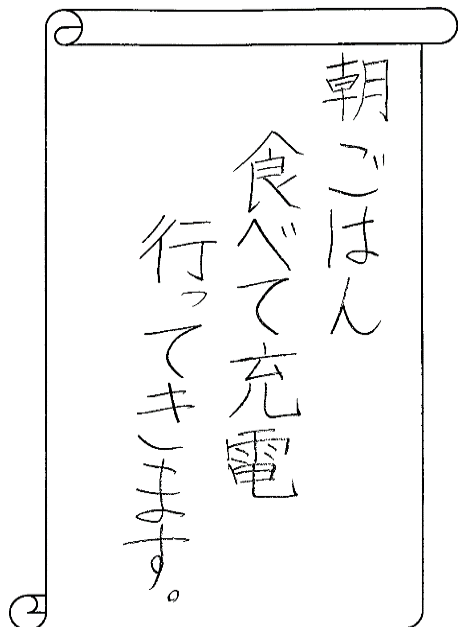 朝ごはん
食べて充電
行ってきます。